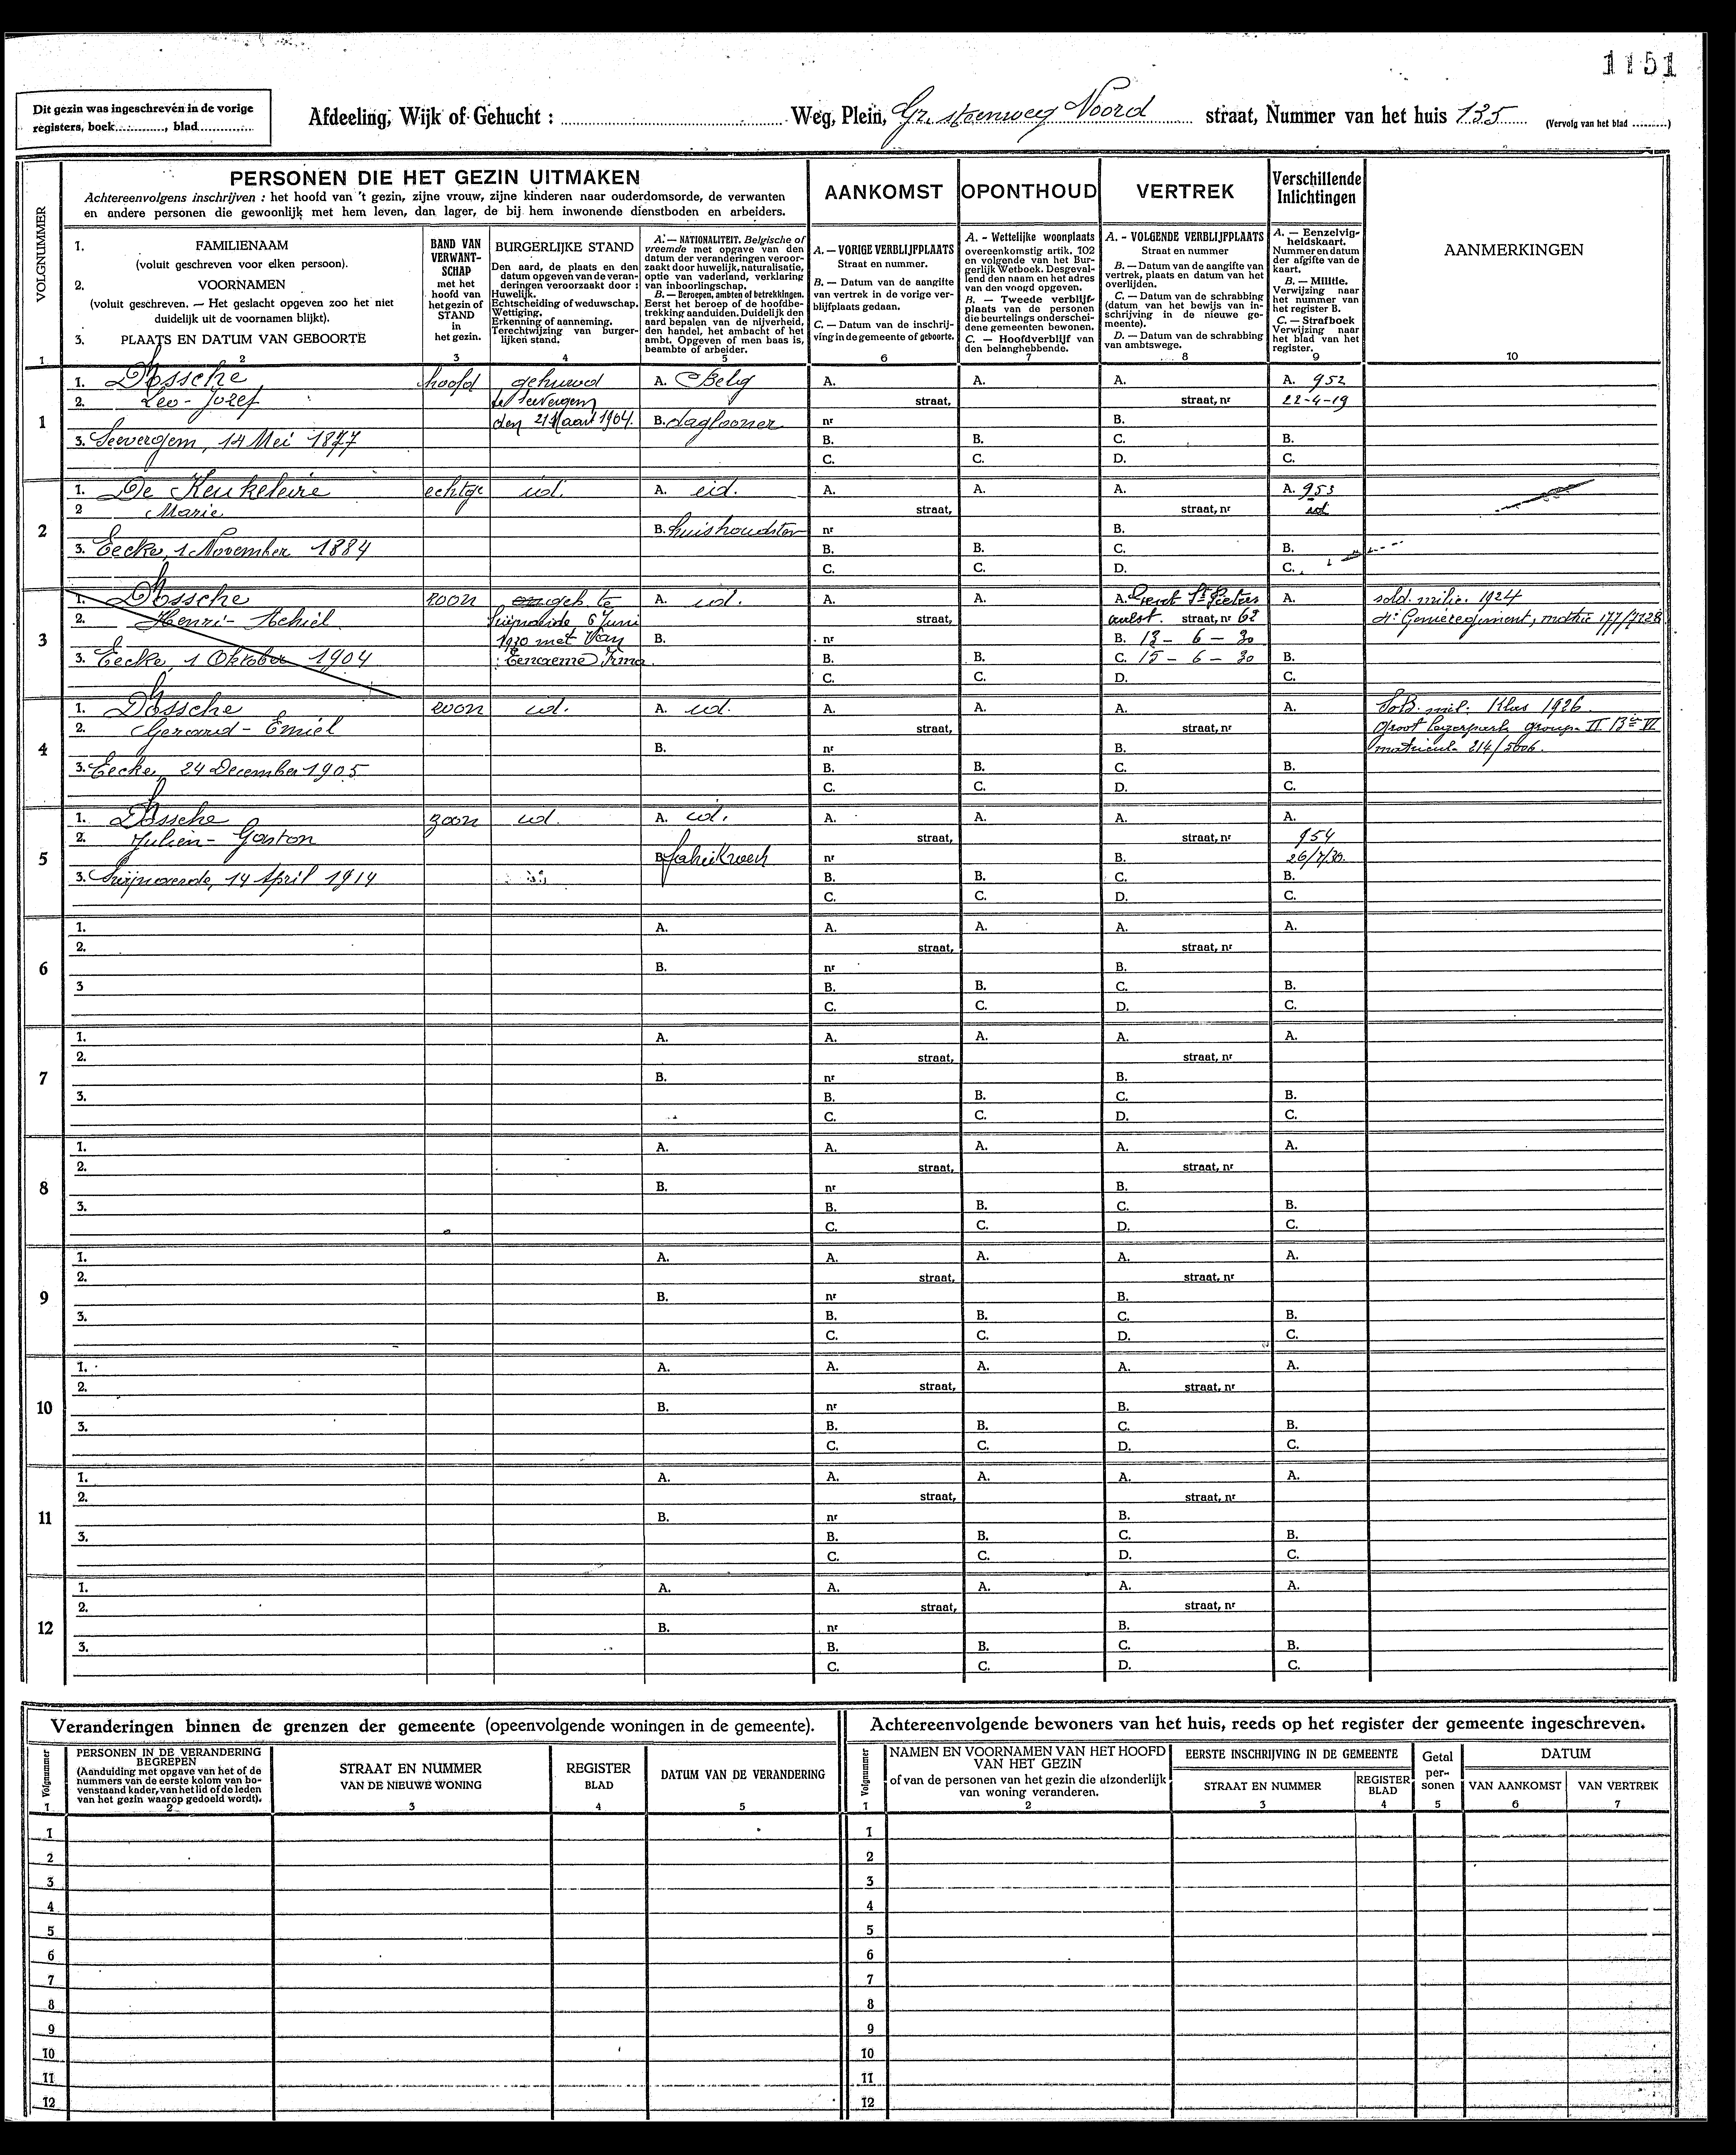 1151
Dit gezin was ingeschreven in de vorige
registers, boek............, blad..............
Afdeeling, Wijk of Gehucht : ........................ Weg, Plein, Gr. steenweg Noord straat, Nummer van het huis 135 (Vervolg van het blad ..........)
PERSONEN DIE HET GEZIN UITMAKEN
Achtereenvolgens inschrijven : het hoofd van 't gezin, zijne vrouw, zijne kinderen naar ouderdomsorde, de verwanten
en andere personen die gewoonlijk met hem leven, dan lager, de bij hem inwonende dienstboden en arbeiders.
AANKOMST
OPONTHOUD
VERTREK
Verschillende
Inlichtingen
AANMERKINGEN
VOLGNUMMER
1. FAMILIENAAM
(voluit geschreven voor elken persoon).
2. VOORNAMEN
(voluit geschreven. — Het geslacht opgeven zoo het niet
duidelijk uit de voornamen blijkt).
3. PLAATS EN DATUM VAN GEBOORTE
BAND VAN
VERWANT-
SCHAP
met het
hoofd van
het gezin of
STAND
in
het gezin.
BURGERLIJKE STAND
Den aard, de plaats en den
datum opgeven van de veran-
deringen veroorzaakt door :
Huwelijk.
Echtscheiding of weduwschap.
Wettiging.
Erkenning of aanneming.
Terechtwijzing van burger-
lijken stand.
A. — NATIONALITEIT. Belgische of
vreemde met opgave van den
datum der veranderingen veroor-
zaakt door huwelijk, naturalisatie,
optie van vaderland, verklaring
van inboorlingschap.
B. — Beroepen, ambten of betrekkingen.
Eerst het beroep of de hoofdbe-
trekking aanduiden. Duidelijk den
aard bepalen van de nijverheid,
den handel, het ambacht of het
ambt. Opgeven of men baas is,
beambte of arbeider.
A. — VORIGE VERBLIJFPLAATS
Straat en nummer.
B. — Datum van de aangifte
van vertrek in de vorige ver-
blijfplaats gedaan.
C. — Datum van de inschrij-
ving in de gemeente of geboorte.
A. - Wettelijke woonplaats
overeenkomstig artik. 102
en volgende van het Bur-
gerlijk Wetboek. Desgeval-
lend den naam en het adres
van den voogd opgeven.
B. — Tweede verblijf-
plaats van de personen
die beurtelings onderschei-
dene gemeenten bewonen.
C. — Hoofdverblijf van
den belanghebbende.
A. - VOLGENDE VERBLIJFPLAATS
Straat en nummer
B. — Datum van de aangifte van
vertrek, plaats en datum van het
overlijden.
C. — Datum van de schrabbing
(datum van het bewijs van in-
schrijving in de nieuwe ge-
meente).
D. — Datum van de schrabbing
van ambtswege.
A. — Eenzelvig-
heidskaart.
Nummer en datum
der afgifte van de
kaart.
B. — Militie.
Verwijzing naar
het nummer van
het register B.
C. — Strafboek
Verwijzing naar
het blad van het
register.
1 2 3 4 5 6 7 8 9 10
1
1. Dossche hoofd gehuwd A. Belg A. A. A. A. 952
2. Leo-Jozef te Seevergem straat, straat, nr 22-4-19
den 21 Maart 1904. B. daglooner nr B.
3. Seevergem, 14 Mei 1877 B. B. C. B.
C. C. D. C.
2
1. De Keukeleire echtge id. A. id. A. A. A. A. 953
2 Marie straat, straat, nr id
B. huishoudster nr B.
3. Eecke, 1 November 1884 B. B. C. B.
C. C. D. C.
3
1. Dossche zoon geh. te A. id. A. A. A. Gent St Pieters A. sold. milic. 1924
2. Henri-Achiel Swijnaarde 6 Juni straat, aalst. straat, nr 62 4e Genieregiment, matric 177/7128
1930 met Van B. nr B. 13 - 6 - 30
3. Eecke, 1 Oktober 1904 Eenaeme Irma B. B. C. 15 - 6 - 30 B.
C. C. D. C.
4
1. Dossche zoon id. A. id. A. A. A. A. Sold. mil. Klas 1926
2. Gerard-Emiel straat, straat, nr Groot legerpark group. II 13e
B. nr B. matricul. 214/5606.
3. Eecke, 24 December 1905 B. B. C. B.
C. C. D. C.
5
1. Dossche zoon id. A. id. A. A. A. A.
2. Julien-Gaston straat, straat, nr 954
B. fabriekwerk nr B. 26/7/30.
3. Swijnaerde, 14 April 1914 B. B. C. B.
C. C. D. C.
6
1. A. A. A. A. A.
2. straat, straat, nr
B. nr B.
3 B. B. C. B.
C. C. D. C.
7
1. A. A. A. A. A.
2. straat, straat, nr
B. nr B.
3. B. B. C. B.
C. C. D. C.
8
1. A. A. A. A. A.
2. straat, straat, nr
B. nr B.
3. B. B. C. B.
C. C. D. C.
9
1. A. A. A. A. A.
2. straat, straat, nr
B. nr B.
3. B. B. C. B.
C. C. D. C.
10
1. A. A. A. A. A.
2. straat, straat, nr
B. nr B.
3. B. B. C. B.
C. C. D. C.
11
1. A. A. A. A. A.
2. straat, straat, nr
B. nr B.
3. B. B. C. B.
C. C. D. C.
12
1. A. A. A. A. A.
2. straat, straat, nr
B. nr B.
3. B. B. C. B.
C. C. D. C.
Veranderingen binnen de grenzen der gemeente (opeenvolgende woningen in de gemeente).
Volgnummer
PERSONEN IN DE VERANDERING
BEGREPEN
(Aanduiding met opgave van het of de
nummers van de eerste kolom van bo-
venstaand kader, van het lid of de leden
van het gezin waarop gedoeld wordt).
STRAAT EN NUMMER
VAN DE NIEUWE WONING
REGISTER
BLAD
DATUM VAN DE VERANDERING
1 2 3 4 5
1
2
3
4
5
6
7
8
9
10
11
12
Achtereenvolgende bewoners van het huis, reeds op het register der gemeente ingeschreven.
Volgnummer
NAMEN EN VOORNAMEN VAN HET HOOFD
VAN HET GEZIN
of van de personen van het gezin die afzonderlijk
van woning veranderen.
EERSTE INSCHRIJVING IN DE GEMEENTE
STRAAT EN NUMMER
REGISTER
BLAD
Getal
per-
sonen
DATUM
VAN AANKOMST
VAN VERTREK
1 2 3 4 5 6 7
1
2
3
4
5
6
7
8
9
10
11
12